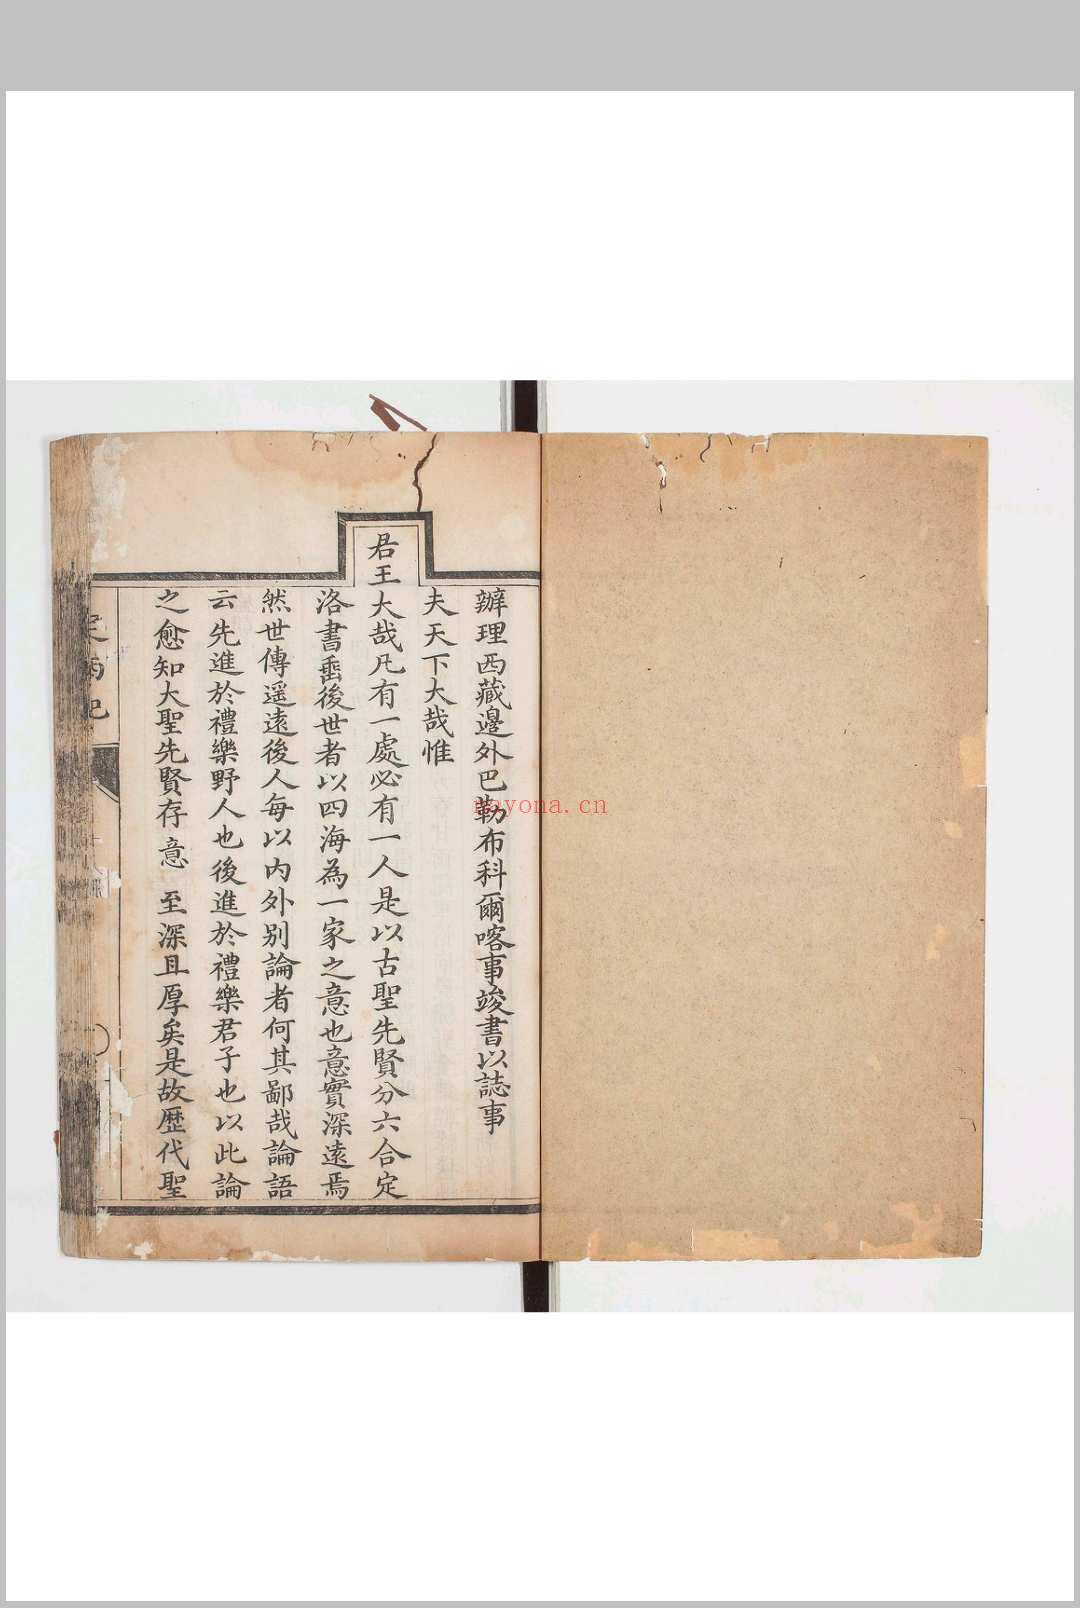 辦理西藏邊外巴勒布科爾喀事竣書以誌事
夫天下大哉惟
君王大哉凡有一處必有一人是以古聖先賢分六合定
洛書垂後世者以四海為一家之意也意實深遠焉
然世傳遥遠後人每以内外别論者何其鄙哉論語
云先進於禮樂野人也後進於禮樂君子也以此論
之愈知大聖先賢存意至深且厚矣是故歴代聖
nayona.cn